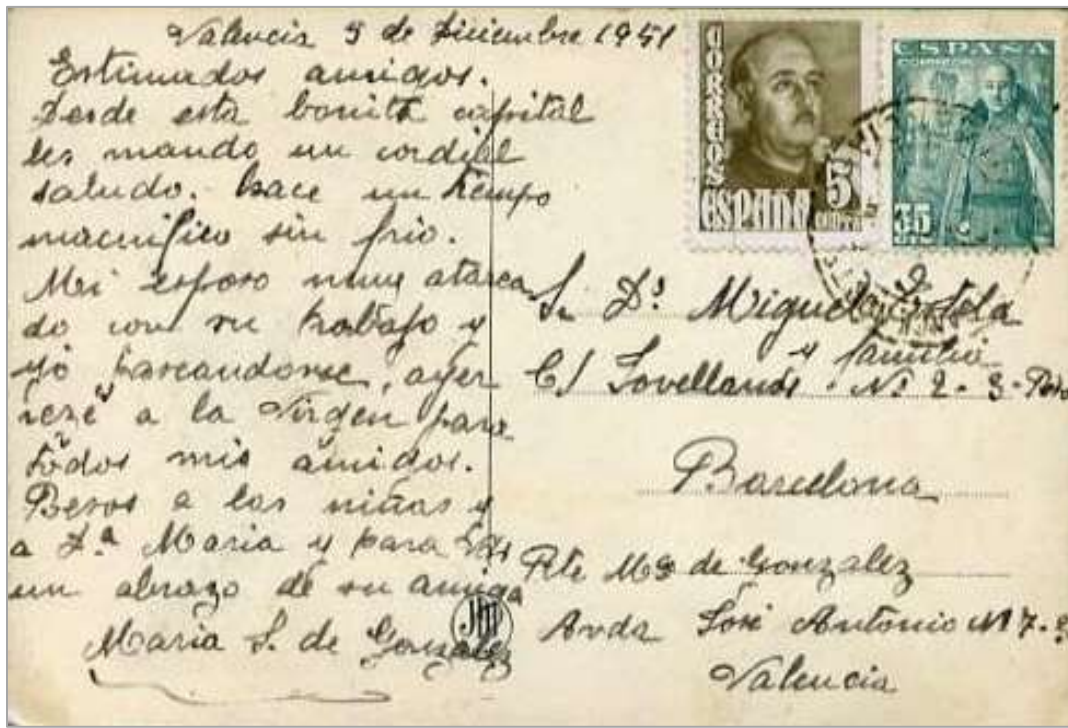 Valencia 5 de Diciembre 1951
Estimados amigos.
Desde esta bonita capital
les mando un cordial
saludo. hace un tiempo
macnifico sin frio.
Mi esposo muy atarea
do con su trabajo y
yo paseandome, ayer
recé a la Virgen para
todos mis amigos.
Besos a las niñas y
a D.ª Maria y para Vds
un abrazo de su amiga
Maria S. de Gonzalez
CORREOS
ESPAÑA
5
ESPAÑA
CORREOS
35
Sr. D. Miguel
y familia
C/ Jovellanos. Nº 2 - 3 -
Barcelona
Rte Mª de Gonzalez
Avda José Antonio Nº 7 -
Valencia